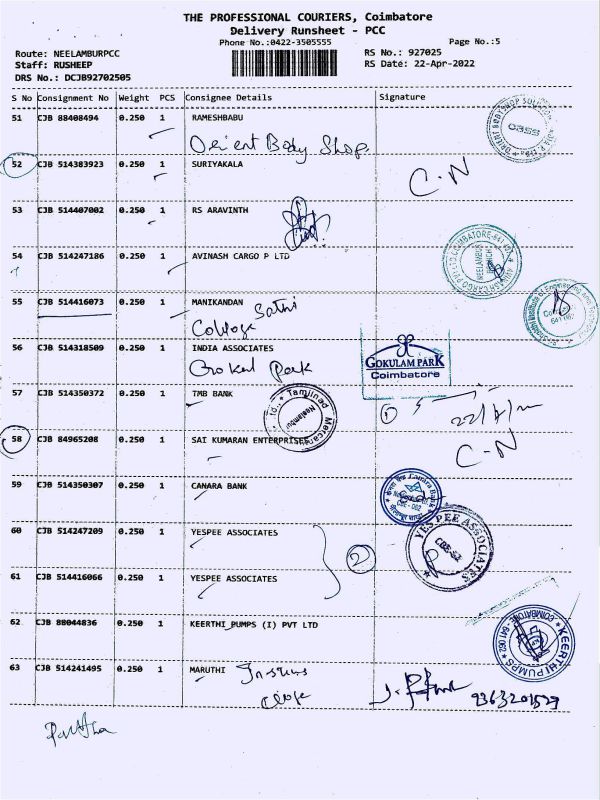 THE PROFESSIONAL COURIERS, Coimbatore
Delivery Runsheet - PCC
Phone No.:0422-3505555
Page No.:5
Route: NEELAMBURPCC
RS No.: 927025
Staff: RUSHEEP
RS Date: 22-Apr-2022
DRS No.: DCJB92702505
S No Consignment No Weight PCS Consignee Details Signature
51 CJB 88408494 0.250 1 RAMESHBABU
Orient Body Shop.
52 CJB 514383923 0.250 1 SURIYAKALA
C-N
53 CJB 514407002 0.250 1 RS ARAVINTH
54 CJB 514247186 0.250 1 AVINASH CARGO P LTD
55 CJB 514416073 0.250 1 MANIKANDAN
College
56 CJB 514318509 0.250 1 INDIA ASSOCIATES
Park
GOKULAM PARK
Coimbatore
57 CJB 514350372 0.250 1 TMB BANK
1
58 CJB 84965208 0.250 1 SAI KUMARAN ENTERPRISES
C-N
59 CJB 514350307 0.250 1 CANARA BANK
Canara Bank
60 CJB 514247209 0.250 1 YESPEE ASSOCIATES
YESPEE ASSOCIATES
CBE-62
2
61 CJB 514416066 0.250 1 YESPEE ASSOCIATES
62 CJB 88044836 0.250 1 KEERTHI PUMPS (I) PVT LTD
KEERTHI PUMPS
COIMBATORE - 641 062
63 CJB 514241495 0.250 1 MARUTHI
9363201529